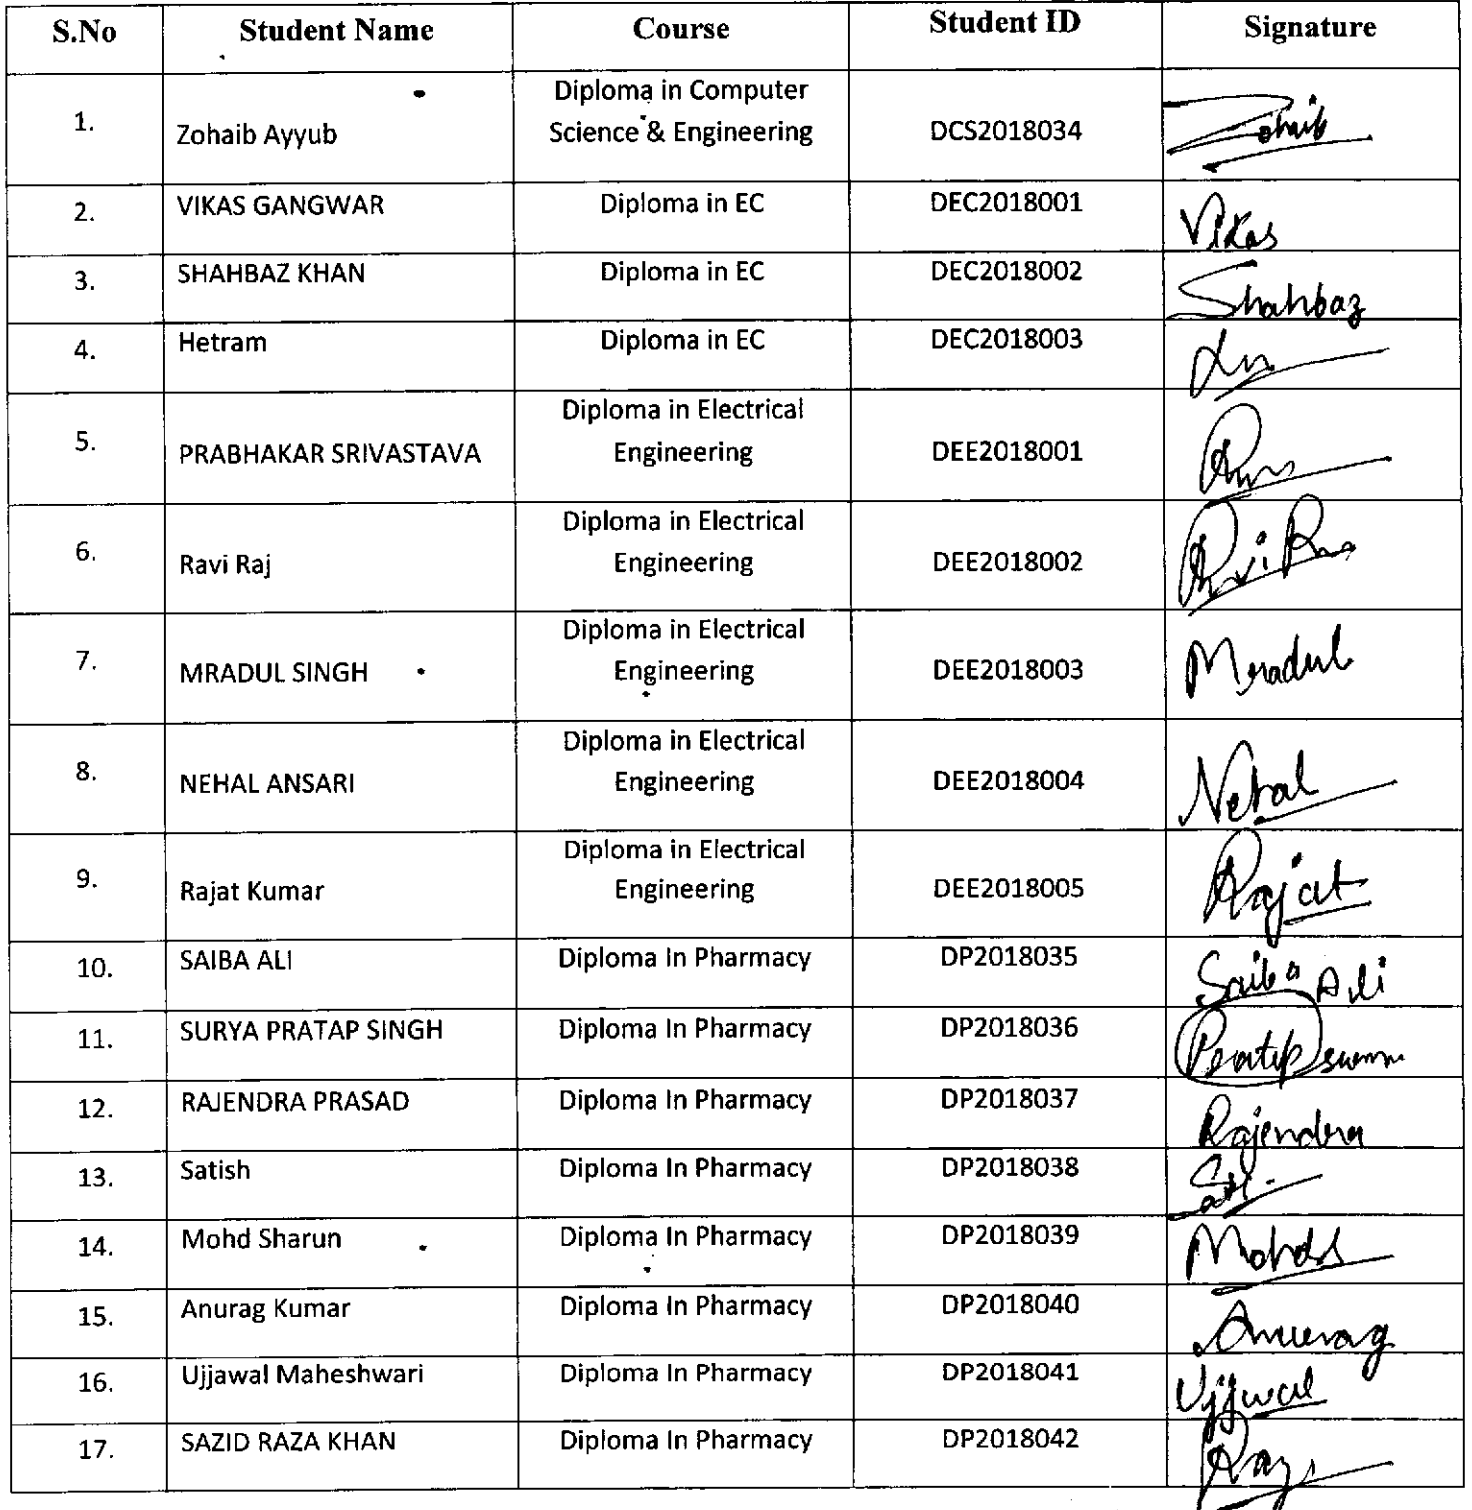 S.No Student Name Course Student ID Signature
1. Zohaib Ayyub Diploma in Computer
Science & Engineering DCS2018034 Zohaib
2. VIKAS GANGWAR Diploma in EC DEC2018001 Vikas
3. SHAHBAZ KHAN Diploma in EC DEC2018002 Shahbaz
4. Hetram Diploma in EC DEC2018003
5. PRABHAKAR SRIVASTAVA Diploma in Electrical
Engineering DEE2018001
6. Ravi Raj Diploma in Electrical
Engineering DEE2018002 Ravi
7. MRADUL SINGH Diploma in Electrical
Engineering DEE2018003 Mradul
8. NEHAL ANSARI Diploma in Electrical
Engineering DEE2018004 Nehal
9. Rajat Kumar Diploma in Electrical
Engineering DEE2018005 Rajat
10. SAIBA ALI Diploma In Pharmacy DP2018035 Saiba Ali
11. SURYA PRATAP SINGH Diploma In Pharmacy DP2018036
12. RAJENDRA PRASAD Diploma In Pharmacy DP2018037 Rajendra
13. Satish Diploma In Pharmacy DP2018038
14. Mohd Sharun Diploma In Pharmacy DP2018039 MohdS
15. Anurag Kumar Diploma In Pharmacy DP2018040 Anurag
16. Ujjawal Maheshwari Diploma In Pharmacy DP2018041 Ujjwal
17. SAZID RAZA KHAN Diploma In Pharmacy DP2018042